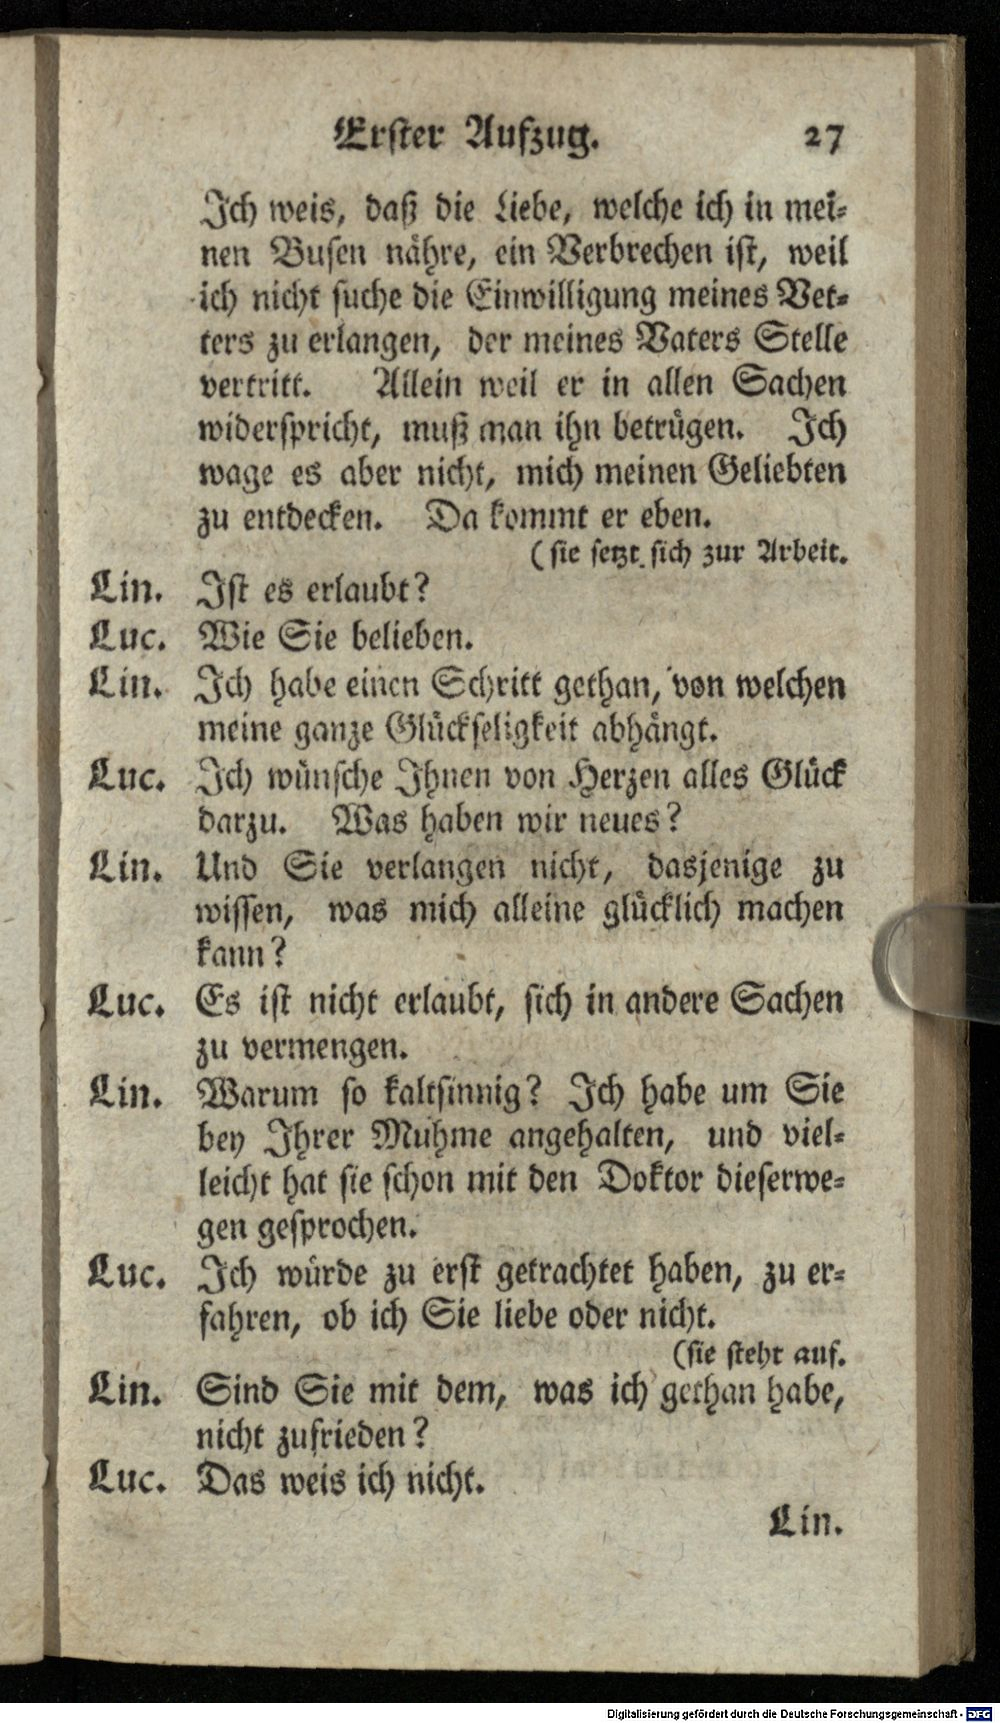 Erster Aufzug. 27
Ich weis, daß die Liebe, welche ich in mei-
nen Busen nähre, ein Verbrechen ist, weil
ich nicht suche die Einwilligung meines Vet-
ters zu erlangen, der meines Vaters Stelle
vertritt. Allein weil er in allen Sachen
widerspricht, muß man ihn betrügen. Ich
wage es aber nicht, mich meinen Geliebten
zu entdecken. Da kommt er eben.
(sie setzt sich zur Arbeit.
Lin. Ist es erlaubt?
Luc. Wie Sie belieben.
Lin. Ich habe einen Schritt gethan, von welchen
meine ganze Glückseligkeit abhängt.
Luc. Ich wünsche Ihnen von Herzen alles Glück
darzu. Was haben wir neues?
Lin. Und Sie verlangen nicht, dasjenige zu
wissen, was mich alleine glücklich machen
kann?
Luc. Es ist nicht erlaubt, sich in andere Sachen
zu vermengen.
Lin. Warum so kaltsinnig? Ich habe um Sie
bey Ihrer Muhme angehalten, und viel-
leicht hat sie schon mit den Doktor dieserwe-
gen gesprochen.
Luc. Ich würde zu erst getrachtet haben, zu er-
fahren, ob ich Sie liebe oder nicht.
(sie steht auf.
Lin. Sind Sie mit dem, was ich gethan habe,
nicht zufrieden?
Luc. Das weis ich nicht.
Lin.
Digitalisierung gefördert durch die Deutsche Forschungsgemeinschaft - DFG